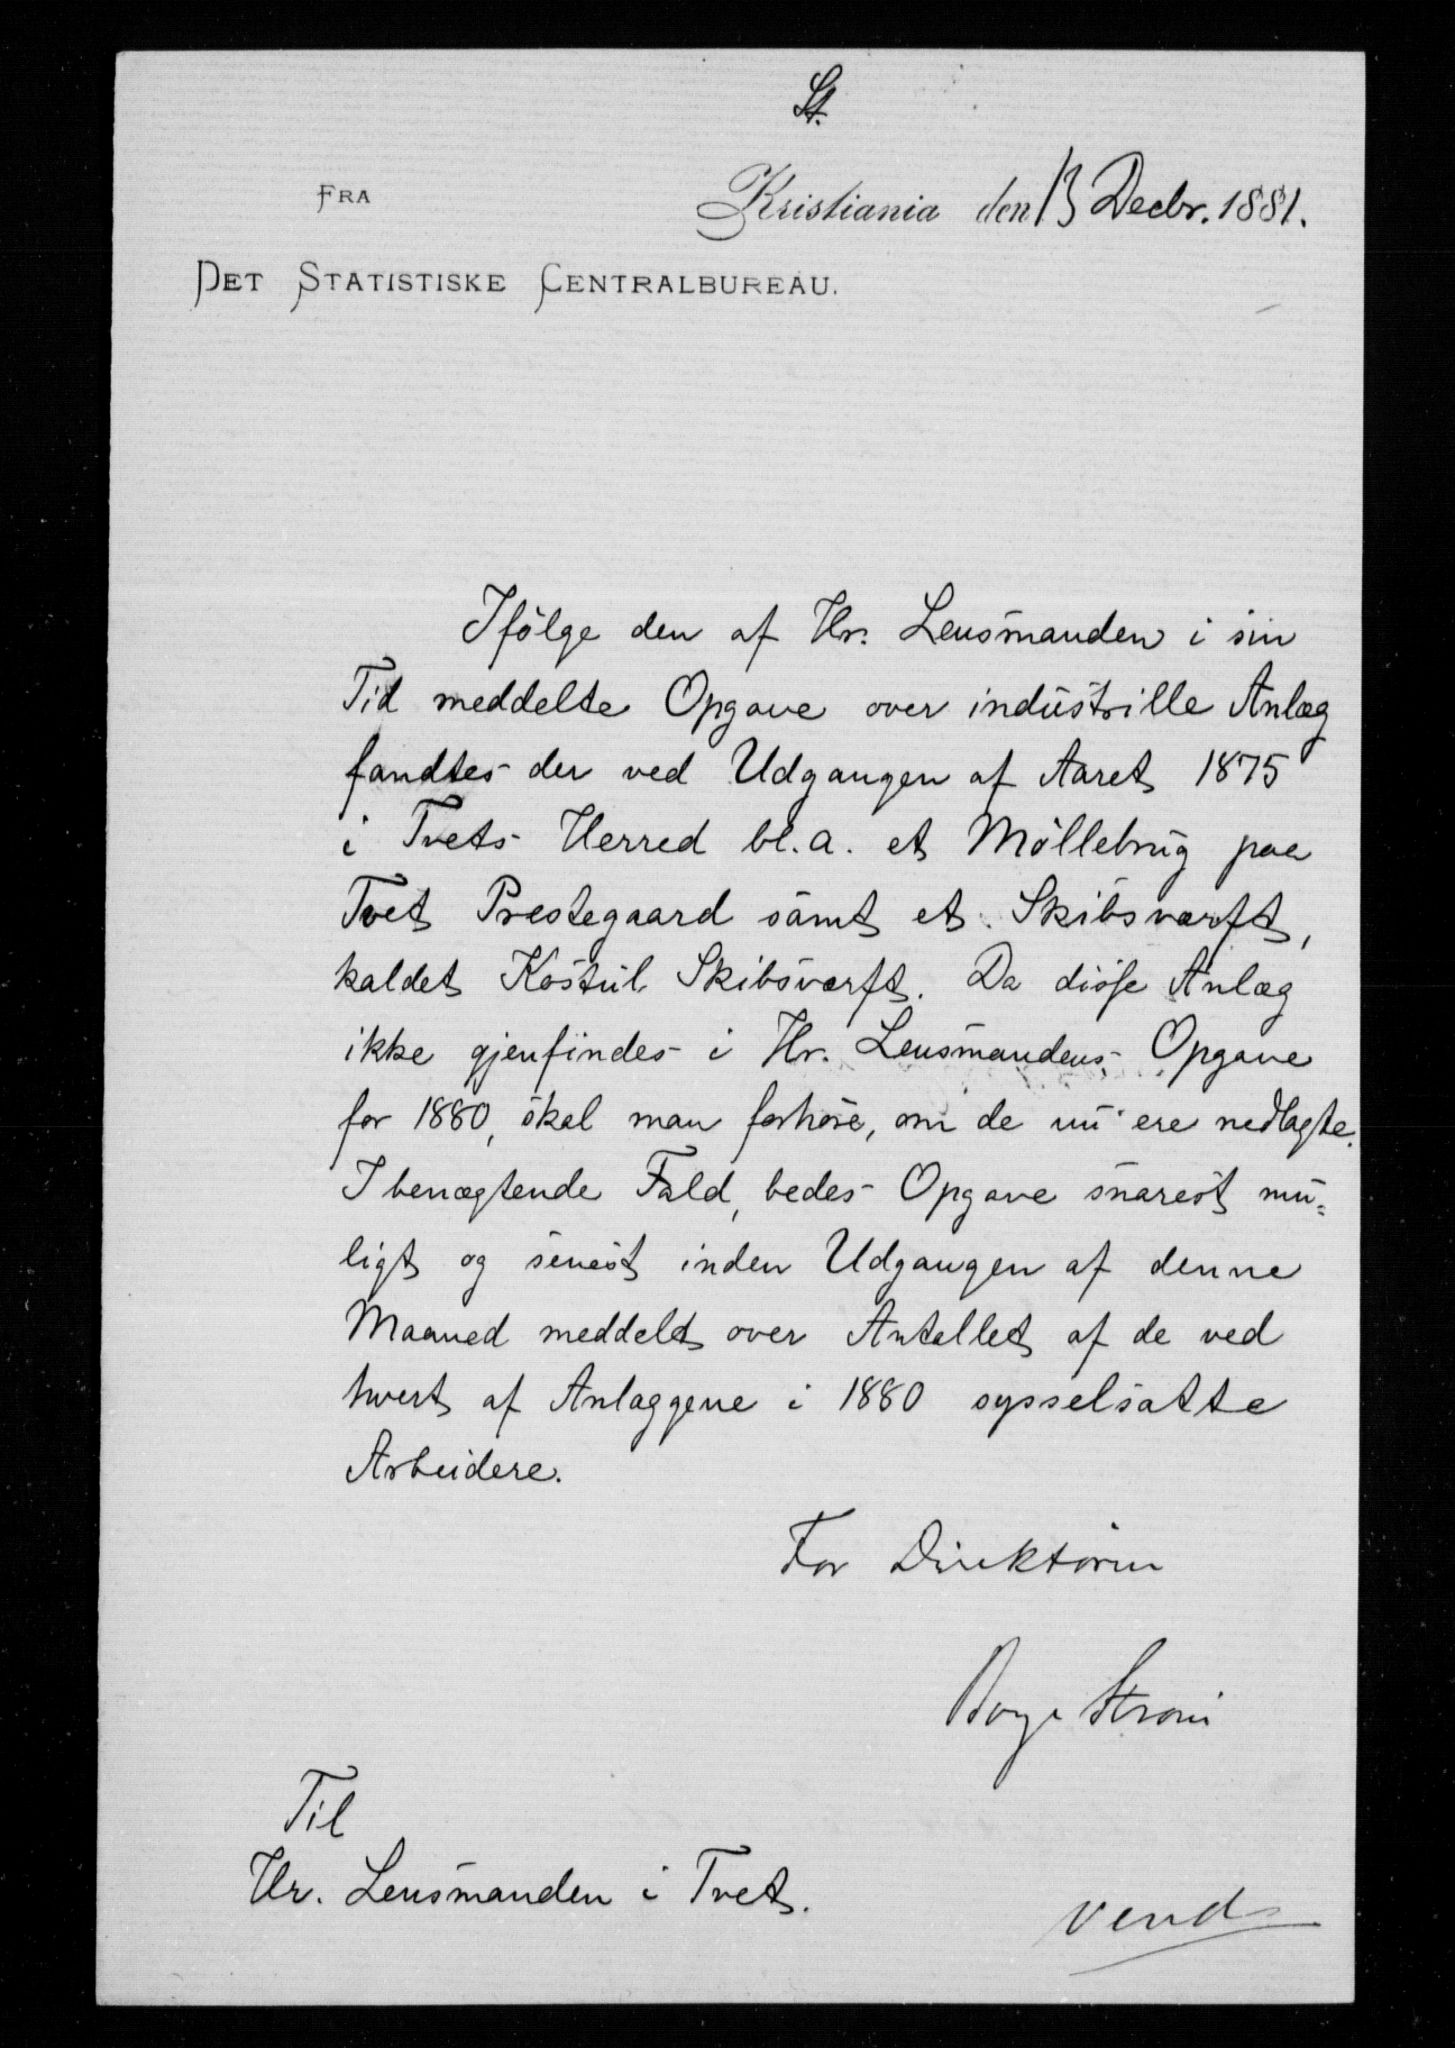 St.
FRA
Kristiania den 13 Decbr. 1881.
DET STATISTISKE CENTRALBUREAU.
Ifölge den af Hr. Lensmanden i sin
Tid meddelte Opgave over industrille Anlæg
fandtes der ved Udgangen af Aaret 1875
i Tvets Herred bl.a. et Möllebrug paa
Tvet Prestegaard samt et Skibsværft,
kaldet Kostul Skibsværft. Da disse Anlæg
ikke gjenfindes i Hr. Lensmandens Opgave
for 1880, skal man forhöre, om de nu ere nedlagte.
I benægtende Fald, bedes Opgave snarest mu=
ligt og senest inden Udgangen af denne
Maaned meddelt over Antallet af de ved
hvert af Anlæggene i 1880 sysselsatte
Arbeidere.
For Direktören
Boye Strøm
Til
Hr. Lensmanden i Tvet.
Vend